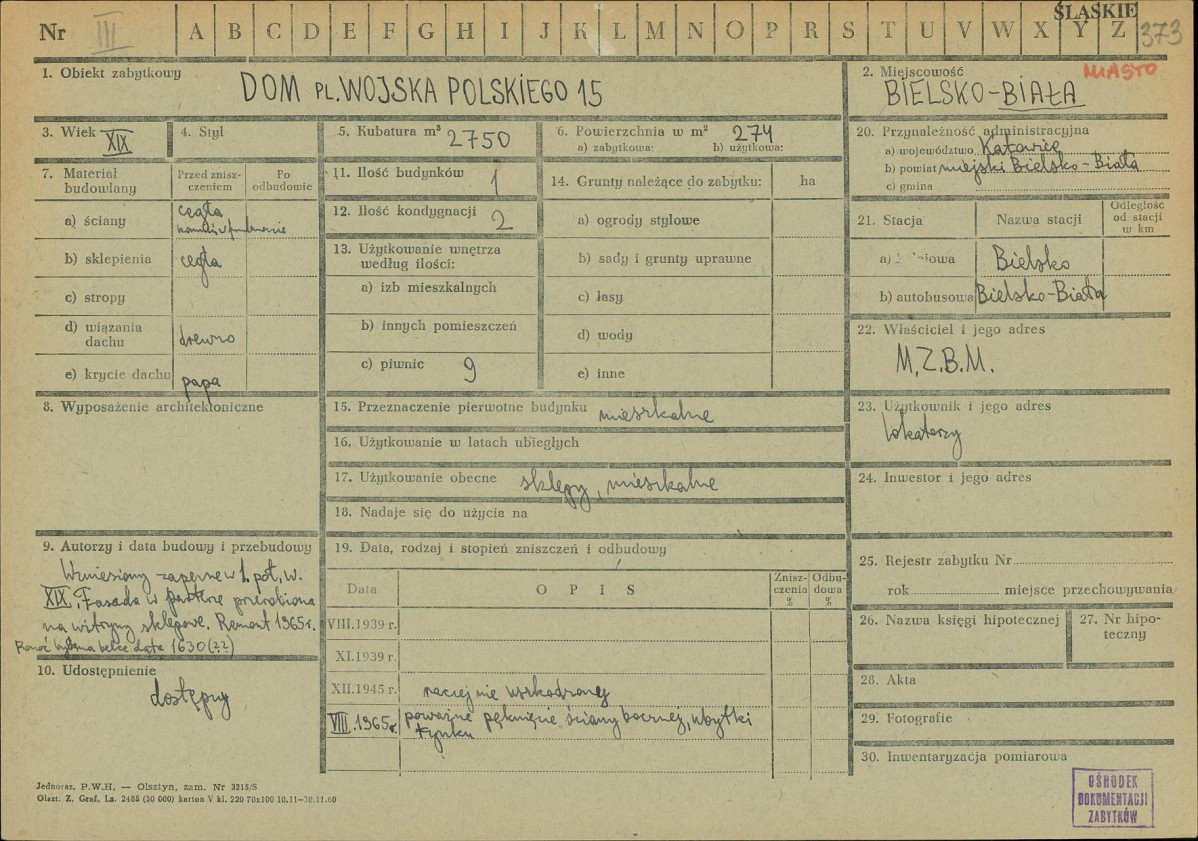 Nr III A B C D E F G H I J K L Ł M N O P R S T U V W X Y Z
ŚLĄSKIE
373
1. Obiekt zabytkowy
DOM PL. WOJSKA POLSKIEGO 15
2. Miejscowość
MIASTO
BIELSKO-BIAŁA
3. Wiek XIX
4. Styl
5. Kubatura m³ 2750
6. Powierzchnia w m² 274
a) zabytkowa: b) użytkowa:
20. Przynależność administracyjna
a) województwo Katowice
b) powiat miejski Bielsko-Biała
c) gmina
7. Materiał budowlany
Przed zniszczeniem
Po odbudowie
a) ściany cegła
b) sklepienia cegła
c) stropy
d) wiązania dachu drewno
e) krycie dachu papa
11. Ilość budynków 1
12. Ilość kondygnacji 2
13. Użytkowanie wnętrza
według ilości:
a) izb mieszkalnych
b) innych pomieszczeń
c) piwnic 9
14. Grunty należące do zabytku: ha
a) ogrody stylowe
b) sady i grunty uprawne
c) lasy
d) wody
e) inne
21. Stacja
Nazwa stacji
Odległość
od stacji
w km
a) Bielsko
b) autobusowa Bielsko-Biała
22. Właściciel i jego adres
M.Z.B.M.
8. Wyposażenie architektoniczne
15. Przeznaczenie pierwotne budynku mieszkalne
16. Użytkowanie w latach ubiegłych
17. Użytkowanie obecne sklepy, mieszkalne
18. Nadaje się do użycia na
23. Użytkownik i jego adres
lokatorzy
24. Inwestor i jego adres
9. Autorzy i data budowy i przebudowy
Wzniesiony zapewne w 1. poł. w.
XIX. Fasada w parterze przerobiona
na witryny sklepowe. Remont 1965 r.
belce data 1630 (??)
10. Udostępnienie
dostępny
19. Data, rodzaj i stopień zniszczeń i odbudowy
Data
O P I S
Zniszczenia %
Odbudowa %
VIII.1939 r.
XI.1939 r.
XII.1945 r. raczej nie uszkodzony
VIII.1965 r. poważne pęknięcie ściany bocznej, ubytki
tynku
25. Rejestr zabytku Nr
rok miejsce przechowywania
26. Nazwa księgi hipotecznej
27. Nr hipoteczny
28. Akta
29. Fotografie
30. Inwentaryzacja pomiarowa
Jednoraz. P.W.H. — Olsztyn, zam. Nr 3215/S
Olszt. Z. Graf. Lz. 2485 (30 000) karton V kl. 220 70x100 10.11-30.11.60
OŚRODEK
DOKUMENTACJI
ZABYTKÓW